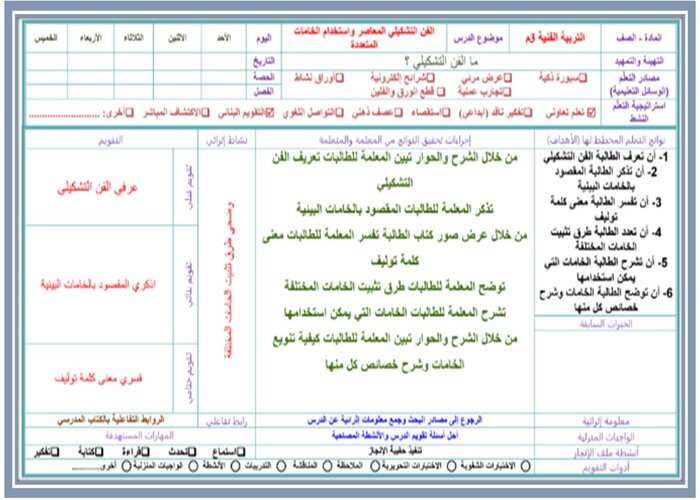 المادة - الصف
التربية الفنية 3م
موضوع الدرس
الفن التشكيلي المعاصر واستخدام الخامات المتعددة
اليوم
الأحد
الاثنين
الثلاثاء
الأربعاء
الخميس
التهيئة والتمهيد
ما الفن التشكيلي ؟
التاريخ
مصادر التعلم (الوسائل التعليمية)
☐سبورة ذكية ☐عرض مرئي ☐شرائح إلكترونية ☐أوراق نشاط
☐تجارب عملية ☐ قطع الورق والفلين
الحصة
الفصل
استراتيجية التعلم النشط
☑ تعلم تعاوني ☐تفكير ناقد (ابداعي) ☐استقصاء ☐عصف ذهني ☐التواصل اللغوي ☑التقويم البنائي ☐الاكتشاف المباشر ☐أخرى: ..........................
نواتج التعلم المخطط لها (الأهداف)
إجراءات تحقيق النواتج من المعلمة والمتعلمة
نشاط إثرائي
التقويم
1- أن تعرف الطالبة الفن التشكيلي
2- أن تذكر الطالبة المقصود بالخامات البينية
3- أن تفسر الطالبة معنى كلمة توليف
4- أن تعدد الطالبة طرق تثبيت الخامات المختلفة
5- أن تشرح الطالبة الخامات التي يمكن استخدامها
6- أن توضح الطالبة الخامات وشرح خصائص كل منها
الخبرات السابقة
من خلال الشرح والحوار تبين المعلمة للطالبات تعريف الفن
التشكيلي
تذكر المعلمة للطالبات المقصود بالخامات البينية
من خلال عرض صور كتاب الطالبة تفسر المعلمة للطالبات معنى
كلمة توليف
توضح المعلمة للطالبات طرق تثبيت الخامات المختلفة
تشرح المعلمة للطالبات الخامات التي يمكن استخدامها
من خلال الشرح والحوار تبين المعلمة للطالبات كيفية تنويع
الخامات وشرح خصائص كل منها
وضحي طرق تثبيت الخامات المختلفة
تقويم قبلي
عرفي الفن التشكيلي
تقويم بنائي
اذكري المقصود بالخامات البينية
تقويم ختامي
فسري معنى كلمة توليف
معلومة إثرائية
الرجوع إلى مصادر البحث وجمع معلومات إثرائية عن الدرس
رابط تفاعلي
الروابط التفاعلية بالكتاب المدرسي
الواجبات المنزلية
أحل أسئلة تقويم الدرس والأنشطة المصاحبة
المهارات المستهدفة
أنشطة ملف الإنجاز
تنفيذ حقيبة الإنجاز
☐استماع ☐تحدث ☐قراءة ☐كتابة ☐تفكير
أدوات التقويم
○ الاختبارات الشفوية ○ الاختبارات التحريرية ○ الملاحظة ○ المناقشة ○ التدريبات ○ الأنشطة ○ الواجبات المنزلية ○ أخرى............